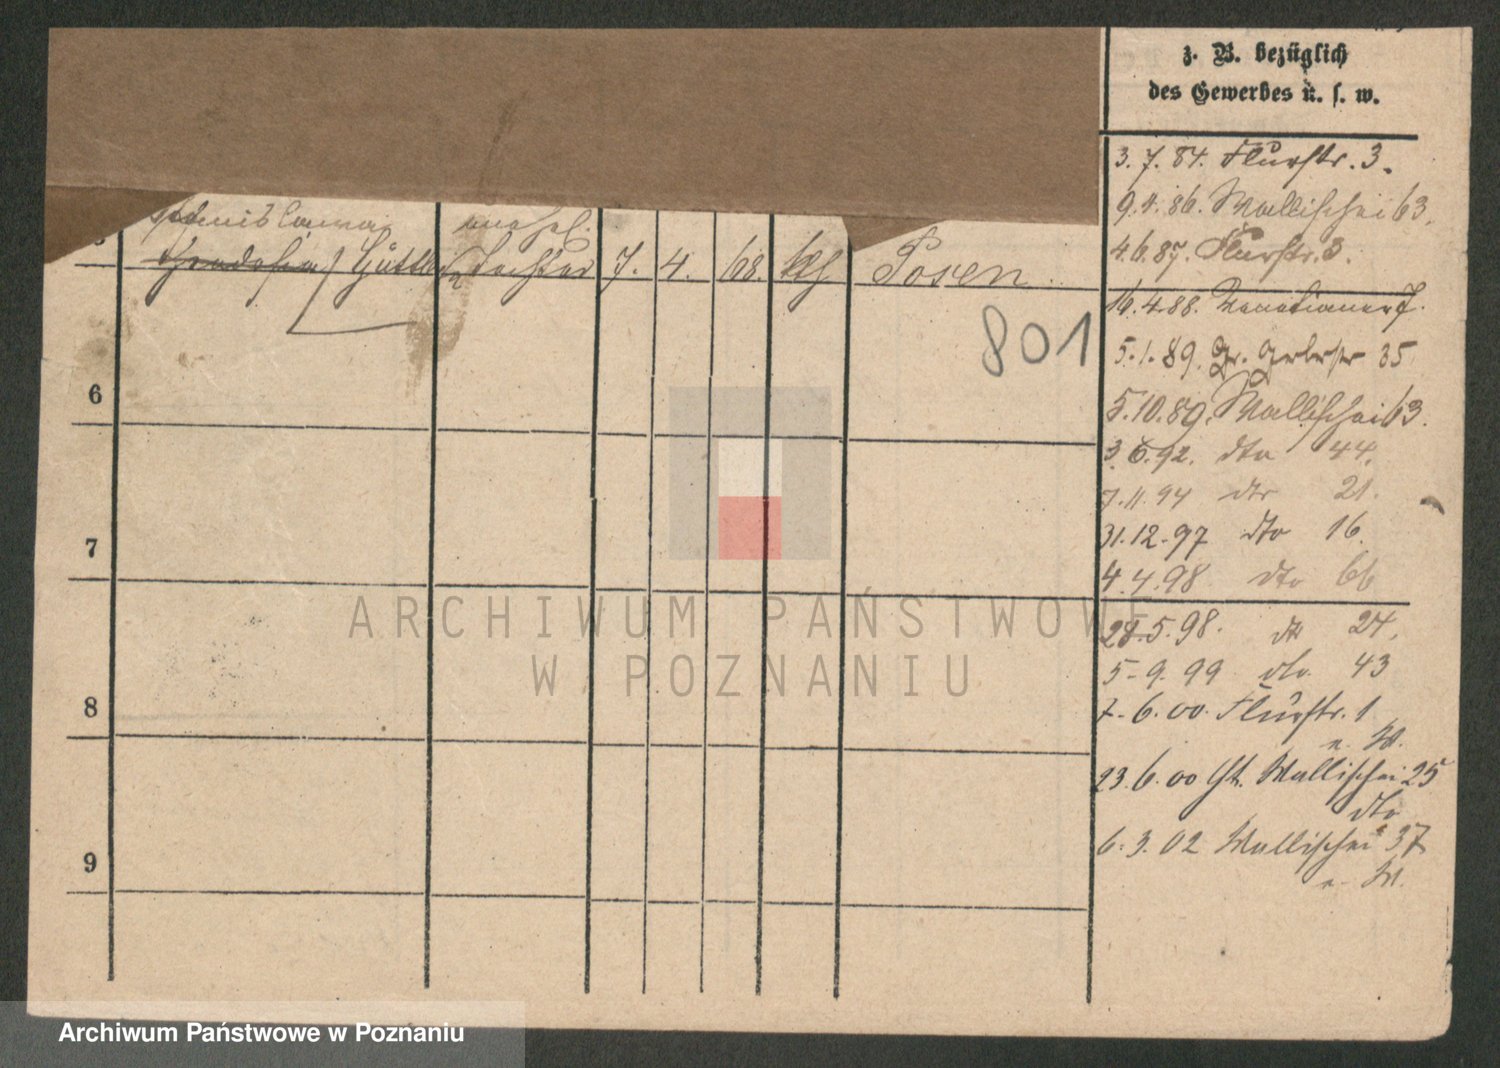 z. B. bezüglich
des Gewerbes u. s. w.
3. 7. 84. Flurstr. 3.
9. 4. 86. Wallischei 63.
unehel.
5 Tochter 7. 4. 68. kth Posen
4. 6. 87. Flurstr. 3.
801
16. 4. 88. Venetianer 7.
5. 1. 89. Gr. Gerberstr 35
6
5. 10. 89. Wallischei 63.
3. 6. 92. dto 44.
7. 11. 94 dto 21.
7
31. 12. 97 dto 16.
4. 4. 98 dto 66
ARCHIWUM PAŃSTWOWE
W POZNANIU
28. 5. 98. dto 24.
5. 9. 99 dto 43
8
7. 6. 00. Flurstr. 1
n. W.
23. 6. 00 Wallischei 25
dto
6. 3. 02 Wallischei 37
n. W.
9
Archiwum Państwowe w Poznaniu